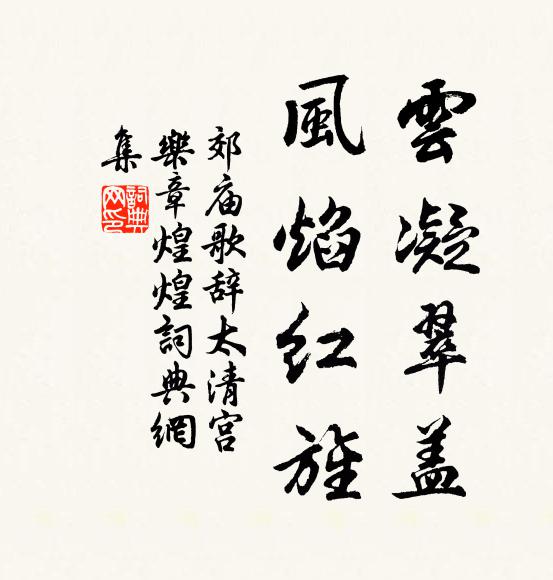 雲凝翠蓋
風焰红旌
郊庙歌辞太清宫
樂章煌煌詞典網
集
詞典网印